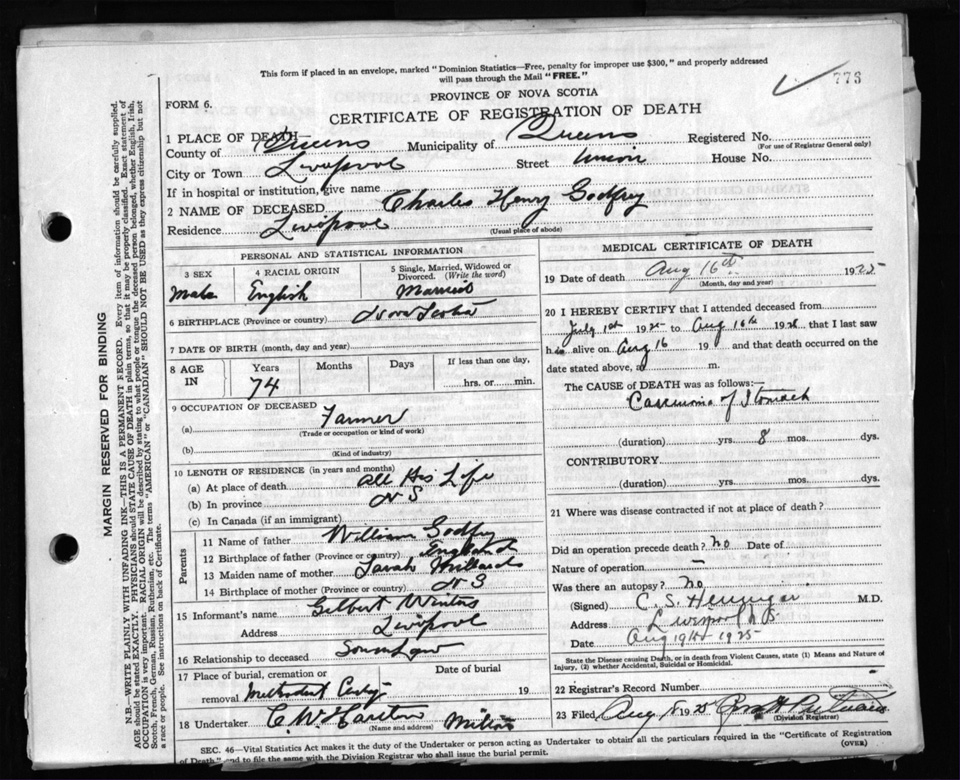 This form if placed in an envelope, marked "Dominion Statistics—Free, penalty for improper use $300," and properly addressed
will pass through the Mail "FREE."
773
PROVINCE OF NOVA SCOTIA
FORM 6.
CERTIFICATE OF REGISTRATION OF DEATH
1 PLACE OF DEATH—
County of Queens Municipality of Queens Registered No.
(For use of Registrar General only)
City or Town Liverpool Street Union House No.
If in hospital or institution, give name
2 NAME OF DECEASED Charles Henry Godfrey
Residence Liverpool
(Usual place of abode)
PERSONAL AND STATISTICAL INFORMATION
3 SEX
Male
4 RACIAL ORIGIN
English
5 Single, Married, Widowed or Divorced. (Write the word)
Married
6 BIRTHPLACE (Province or country) Nova Scotia
7 DATE OF BIRTH (month, day and year)
8 AGE IN
Years
74
Months
Days
If less than one day,
hrs. or min.
9 OCCUPATION OF DECEASED
(a) Farmer
(Trade or occupation or kind of work)
(b)
(Kind of industry)
10 LENGTH OF RESIDENCE (in years and months)
(a) At place of death All His Life
(b) In province N S
(c) In Canada (if an immigrant)
Parents
11 Name of father William Godfrey
12 Birthplace of father (Province or country) England
13 Maiden name of mother Sarah Millard
14 Birthplace of mother (Province or country) N S
15 Informant's name Gilbert Winters
Address Liverpool
16 Relationship to deceased Son in Law
17 Place of burial, cremation or removal Methodist Cemty
Date of burial
19
18 Undertaker C. W. Milton
(Name and address)
MEDICAL CERTIFICATE OF DEATH
19 Date of death Aug 16th 1925
(Month, day and year)
20 I HEREBY CERTIFY that I attended deceased from
July 1st 1925 to Aug 16th 1925, that I last saw
him alive on Aug 16 19 and that death occurred on the
date stated above, at m.
The CAUSE OF DEATH was as follows:—
Carcinoma of Stomach
(duration) yrs. 8 mos. dys.
CONTRIBUTORY
(duration) yrs. mos. dys.
21 Where was disease contracted if not at place of death?
Did an operation precede death? No Date of
Nature of operation —
Was there an autopsy? No
(Signed) C. S. Hennigar M.D.
Address Liverpool N.S.
Date Aug 19th 1925
State the Disease causing Death, or in death from Violent Causes, state (1) Means and Nature of
Injury, (2) whether Accidental, Suicidal or Homicidal.
22 Registrar's Record Number
23 Filed, Aug 1925
(Division Registrar)
SEC. 46—Vital Statistics Act makes it the duty of the Undertaker or person acting as Undertaker to obtain all the particulars required in the "Certificate of Registration
of Death" and to file the same with the Division Registrar who shall issue the burial permit.
(OVER)
MARGIN RESERVED FOR BINDING
N.B.—WRITE PLAINLY WITH UNFADING INK—THIS IS A PERMANENT RECORD. Every item of information should be carefully supplied.
AGE should be stated EXACTLY. PHYSICIANS should STATE CAUSE OF DEATH in plain terms, so that it may be properly classified. Exact statement of
OCCUPATION is very important. RACIAL ORIGIN will be described by stating to what people or tongue the deceased person belonged, whether English, Irish,
Scotch, French, German, Russian, Ruthenian, etc. The terms "AMERICAN" or "CANADIAN" SHOULD NOT BE USED as they express citizenship but not
a race or people. See instructions on back of Certificate.